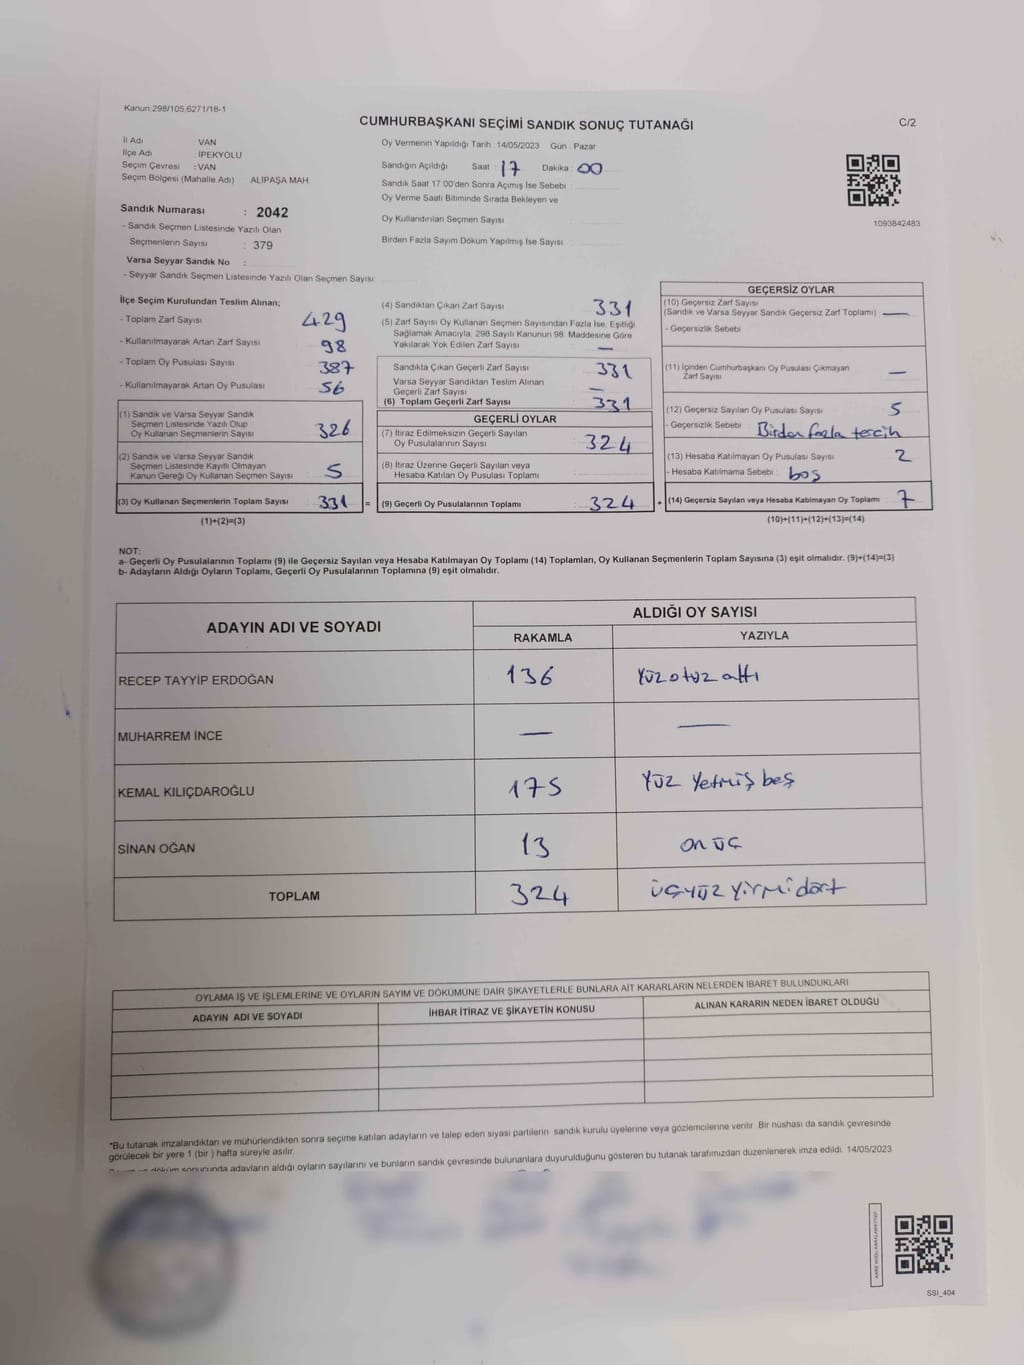 Kanun:298/105,6271/18-1
CUMHURBAŞKANI SEÇİMİ SANDIK SONUÇ TUTANAĞI
C/2
İl Adı VAN
İlçe Adı : İPEKYOLU
Seçim Çevresi : VAN
Seçim Bölgesi (Mahalle Adı) ALİPAŞA MAH.
Oy Vermenin Yapıldığı Tarih : 14/05/2023 Gün : Pazar
Sandığın Açıldığı Saat : 17 Dakika : 00
Sandık Saat 17:00'den Sonra Açımış İse Sebebi
Oy Verme Saati Bitiminde Sırada Bekleyen ve
Oy Kullandırılan Seçmen Sayısı
Birden Fazla Sayım Döküm Yapılmış İse Sayısı
1093842483
Sandık Numarası : 2042
- Sandık Seçmen Listesinde Yazılı Olan
Seçmenlerin Sayısı : 379
Varsa Seyyar Sandık No :
- Seyyar Sandık Seçmen Listesinde Yazılı Olan Seçmen Sayısı
İlçe Seçim Kurulundan Teslim Alınan;
- Toplam Zarf Sayısı 429
- Kullanılmayarak Artan Zarf Sayısı 98
- Toplam Oy Pusulası Sayısı 387
- Kullanılmayarak Artan Oy Pusulası 56
(1) Sandık ve Varsa Seyyar Sandık
Seçmen Listesinde Yazılı Olup
Oy Kullanan Seçmenlerin Sayısı 326
(2) Sandık ve Varsa Seyyar Sandık
Seçmen Listesinde Kayıtlı Olmayan
Kanun Gereği Oy Kullanan Seçmen Sayısı 5
(3) Oy Kullanan Seçmenlerin Toplam Sayısı 331 =
(1)+(2)=(3)
(4) Sandıktan Çıkan Zarf Sayısı 331
(5) Zarf Sayısı Oy Kullanan Seçmen Sayısından Fazla İse, Eşitliği
Sağlamak Amacıyla, 298 Sayılı Kanunun 98. Maddesine Göre
Yakılarak Yok Edilen Zarf Sayısı —
Sandıkta Çıkan Geçerli Zarf Sayısı 331
Varsa Seyyar Sandıktan Teslim Alınan
Geçerli Zarf Sayısı —
(6) Toplam Geçerli Zarf Sayısı 331
GEÇERLİ OYLAR
(7) İtiraz Edilmeksizin Geçerli Sayılan
Oy Pusulalarının Sayısı 324
(8) İtiraz Üzerine Geçerli Sayılan veya
Hesaba Katılan Oy Pusulası Toplamı
(9) Geçerli Oy Pusulalarının Toplamı 324 +
GEÇERSİZ OYLAR
(10) Geçersiz Zarf Sayısı
(Sandık ve Varsa Seyyar Sandık Geçersiz Zarf Toplamı) —
- Geçersizlik Sebebi
(11) İçinden Cumhurbaşkanı Oy Pusulası Çıkmayan
Zarf Sayısı —
(12) Geçersiz Sayılan Oy Pusulası Sayısı 5
- Geçersizlik Sebebi : Birden fazla tercih
(13) Hesaba Katılmayan Oy Pusulası Sayısı 2
- Hesaba Katılmama Sebebi : boş
(14) Geçersiz Sayılan veya Hesaba Katılmayan Oy Toplamı 7
(10)+(11)+(12)+(13)=(14)
NOT:
a- Geçerli Oy Pusulalarının Toplamı (9) ile Geçersiz Sayılan veya Hesaba Katılmayan Oy Toplamı (14) Toplamları, Oy Kullanan Seçmenlerin Toplam Sayısına (3) eşit olmalıdır. (9)+(14)=(3)
b- Adayların Aldığı Oyların Toplamı, Geçerli Oy Pusulalarının Toplamına (9) eşit olmalıdır.
ADAYIN ADI VE SOYADI
ALDIĞI OY SAYISI
RAKAMLA YAZIYLA
RECEP TAYYİP ERDOĞAN 136 Yüz otuz altı
MUHARREM İNCE — —
KEMAL KILIÇDAROĞLU 175 Yüz Yetmiş beş
SİNAN OĞAN 13 on üç
TOPLAM 324 üçyüz yirmi dört
OYLAMA İŞ VE İŞLEMLERİNE VE OYLARIN SAYIM VE DÖKÜMÜNE DAİR ŞİKAYETLERLE BUNLARA AİT KARARLARIN NELERDEN İBARET BULUNDUKLARI
ADAYIN ADI VE SOYADI İHBAR İTİRAZ VE ŞİKAYETİN KONUSU ALINAN KARARIN NEDEN İBARET OLDUĞU
*Bu tutanak imzalandıktan ve mühürlendikten sonra seçime katılan adayların ve talep eden siyasi partilerin sandık kurulu üyelerine veya gözlemcilerine verilir. Bir nüshası da sandık çevresinde
görülecek bir yere 1 (bir) hafta süreyle asılır.
döküm sonucunda adayların aldığı oyların sayılarını ve bunların sandık çevresinde bulunanlara duyurulduğunu gösteren bu tutanak tarafımızdan düzenlenerek imza edildi. 14/05/2023
SSİ_404